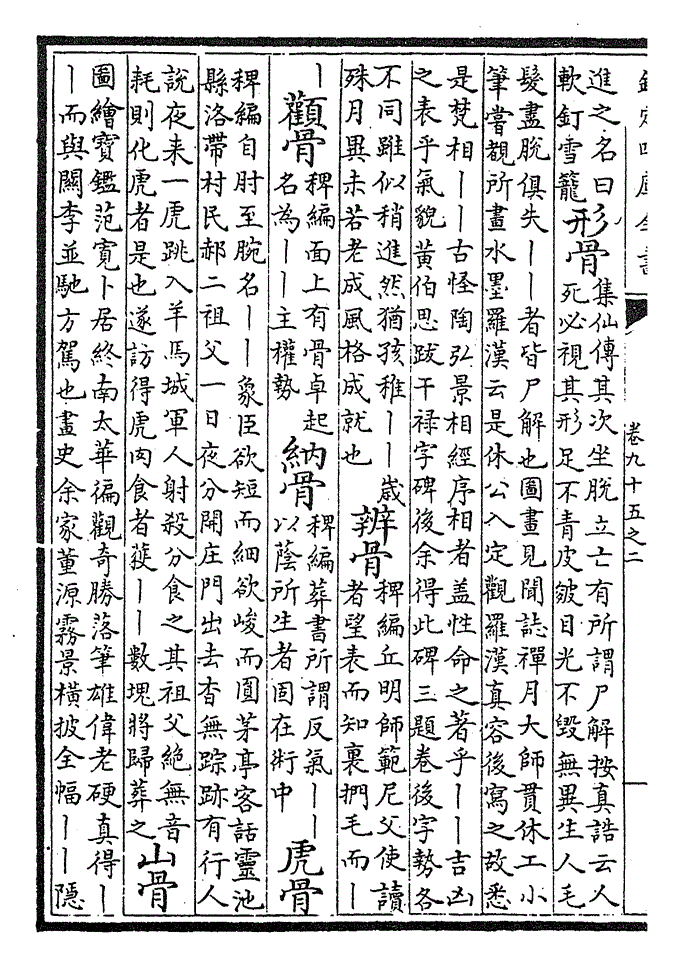 欽定四庫全書
卷九十五之二
進之名曰
軟釘雪籠
形骨
集仙傳其次坐脫立亡有所謂尸解按真誥云人
死必視其形足不青皮皴目光不毀無異生人毛
髮盡脫俱失丨丨者皆尸解也圖畫見聞誌禪月大師貫休工小
筆嘗覩所畫水墨羅漢云是休公入定觀羅漢真容後寫之故悉
是梵相丨丨古怪陶弘景相經序相者盖性命之著乎丨丨吉凶
之表乎氣貌黄伯思跋干禄字碑後余得此碑三題卷後字勢各
不同雖似稍進然猶孩稚丨丨歳
殊月異未若老成風格成就也
辨骨
稗編丘明師範尼父使讀
者望表而知裏捫毛而丨
丨
顴骨
稗編面上有骨卓起
名為丨丨主權勢
納骨
稗編葬書所謂反氣丨丨
以蔭所生者固在術中
虎骨
稗編自肘至腕名丨丨象臣欲短而細欲峻而圓茅亭客話靈池
縣洛帶村民郝二祖父一日夜分開庄門出去杳無踪跡有行人
說夜来一虎跳入羊馬城軍人射殺分食之其祖父絶無音
耗則化虎者是也遂訪得虎肉食者獲丨丨數塊將歸葬之
山骨
圖繪寶鑑范寛卜居終南太華徧觀奇勝落筆雄偉老硬真得丨
丨而與關李並馳方駕也畫史余家董源霧景橫披全幅丨丨隱